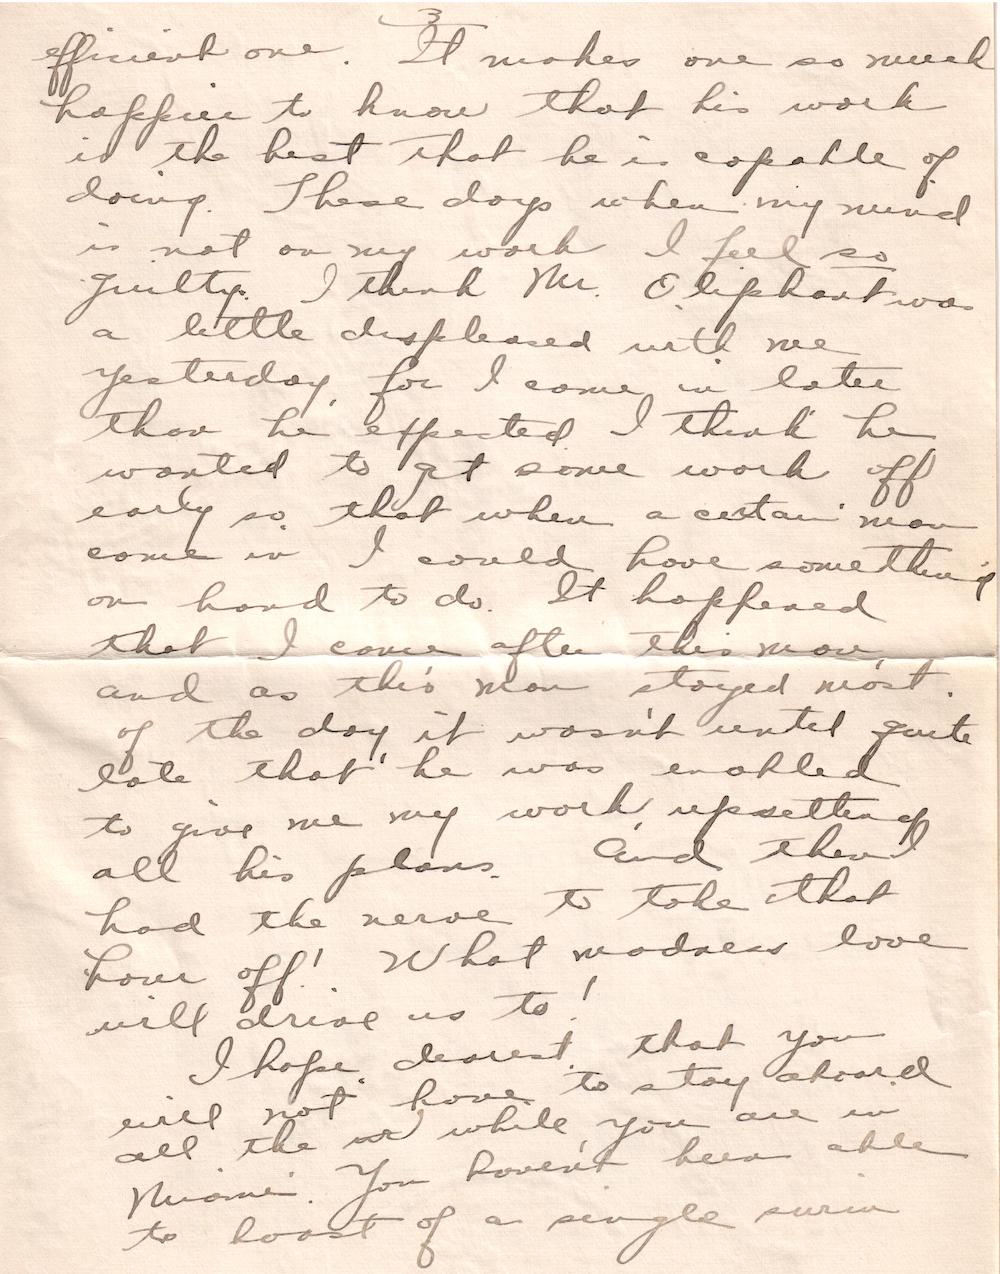 3
efficient one. It makes one so much
happier to know that his work
is the best that he is capable of
doing. These days when my mind
is not on my work I feel so
guilty. I think Mr. Oliphant was
a little displeased with me
yesterday, for I came in later
than he expected I think he
wanted to get some work off
early so that when a certain man
came in I could have something
on hand to do. It happened
that I came after this man,
and as this man stayed most
of the day it wasn't until quite
late that he was enabled
to give me my work, upsetting
all his plans. And then I
had the nerve to take that
hour off! What madness love
will drive us to!
I hope dearest, that you
will not have to stay aboard
all the while you are in
Miami. You haven't been able
to boast of a single swim